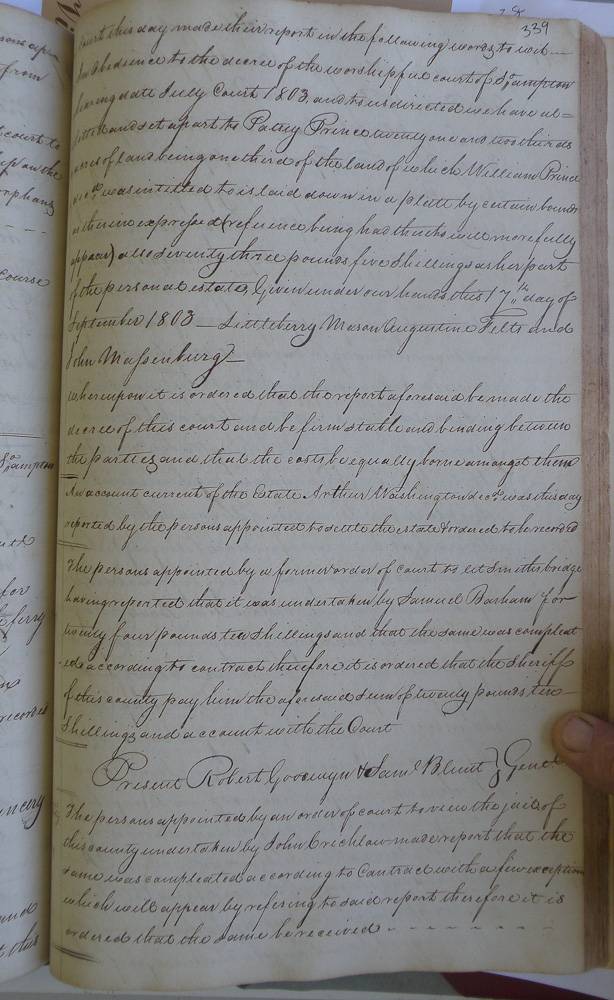 339
Court this day made their report in the following words to wit—
In obedience to the decree of the worshipful court of So.ampton
bearing date July Court 1803, and to us directed we have al=
lotted and set apart to Patsey Prince twenty one and two thirds
acres of land being one third of the land of which William Prince
decd. was intitled to is laid down in a platt by certain bounds
as therein expressed (reference being had thereto will more fully
appear) also seventy three pounds five shillings as her part
of the personal estate, Given under our hands this 17th. day of
September 1803 — Littleberry Mason Augustine Felts and
John Massenburg—
whereupon it is ordered that the report aforesaid be made the
decree of this court and be firm stable and binding between
the parties, and that the costs be equally borne amongst them
An account current of the Estate Arthur Washington decd. was this day
reported by the persons appointed to settle the estate & ordered to be recorded
The persons appointed by a former order of court to let Smiths bridge
having reported that it was undertaken by Samuel Barham for
twenty four pounds ten shillings and that the same was compleat
-ed according to contract therefore it is ordered that the Sheriff
of this county pay him the aforesaid sum of twenty pounds ten
Shillings and account with the Court
Present Robert Goodwyn & Saml. Blunt } Gent.
The persons appointed by an order of court to view the jail of
this county undertaken by John Crichlow made report that the
same was compleated according to Contract with a few exception
which will appear by refering to said report therefore it is
ordered that the same be received - - - - - - - -